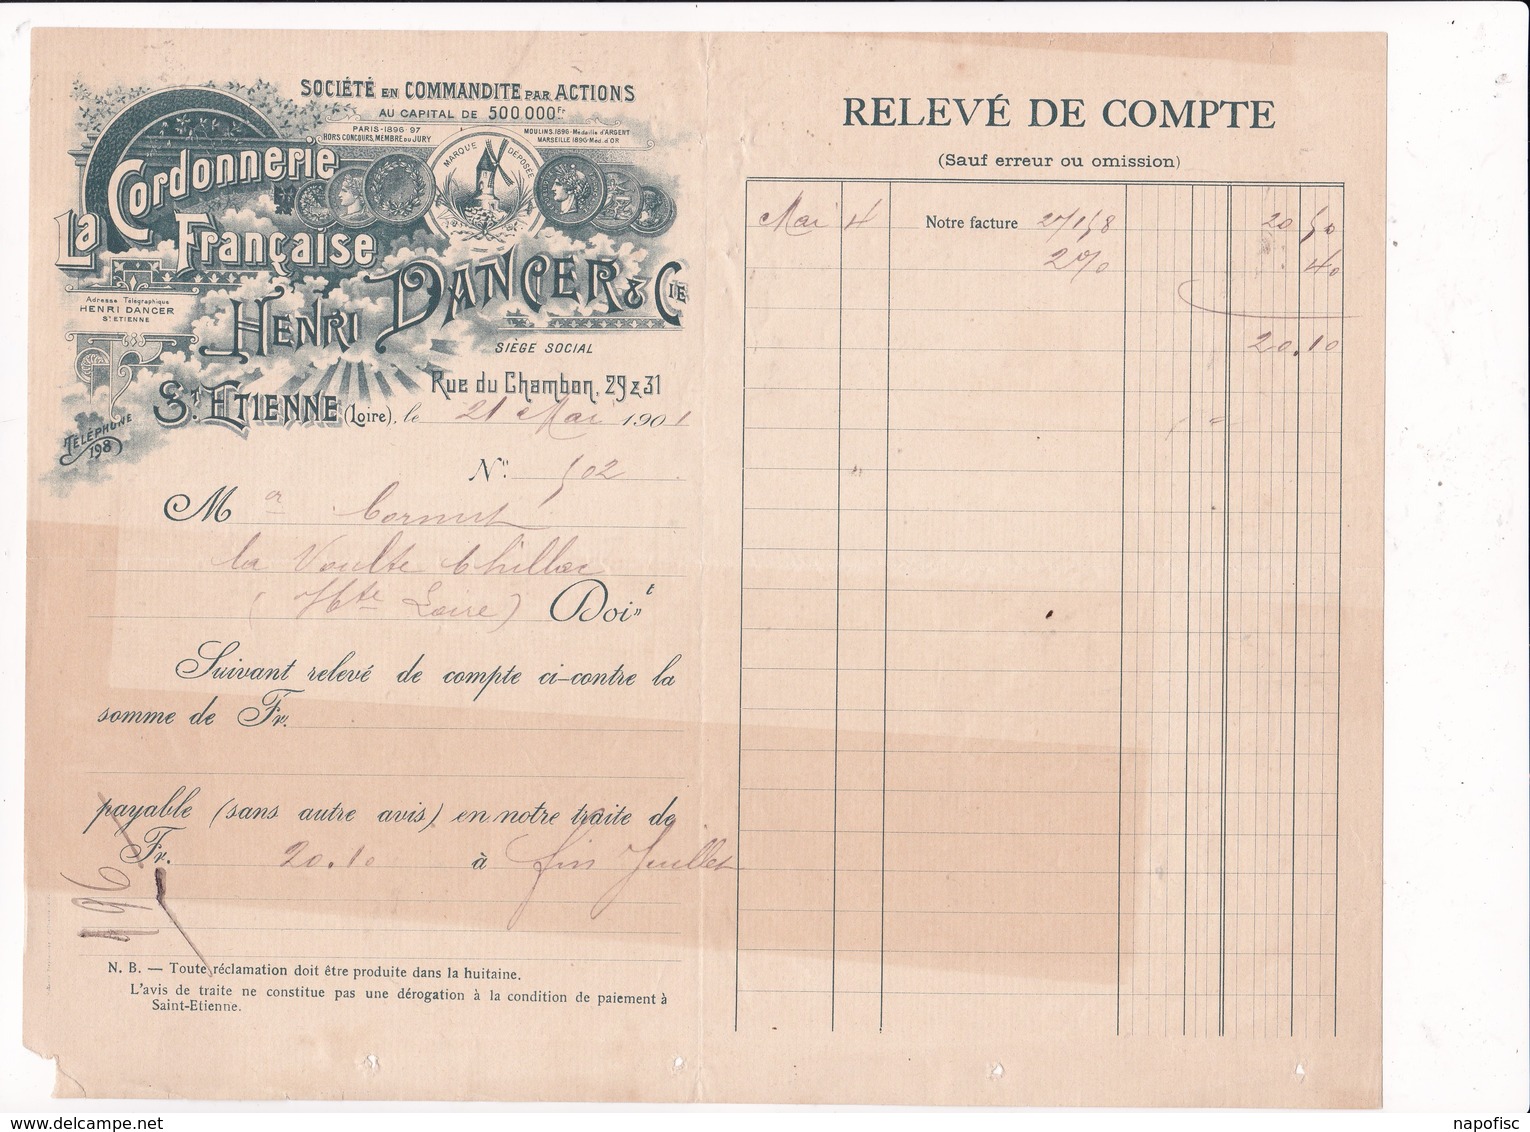 SOCIÉTÉ EN COMMANDITE PAR ACTIONS
AU CAPITAL DE 500 000 Fr
PARIS-1896-97
HORS CONCOURS, MEMBRE DU JURY
MOULINS.1896-Médaille d'ARGENT
MARSEILLE 1896-Méd. d'OR
MARQUE DÉPOSÉE
La Cordonnerie
Française
HENRI DANCER & CIE
Adresse Télégraphique
HENRI DANCER
ST ETIENNE
SIÈGE SOCIAL
Rue du Chambon, 29 & 31
ST. ETIENNE (Loire), le 21 Mai 1901
TÉLÉPHONE
198
No. 502
Mor Cornut
la Voulte Chillac
(Hte Loire) Doit
Suivant relevé de compte ci-contre la
somme de Fr.
payable (sans autre avis) en notre traite de
Fr. 20.10 à fin Juillet
196
N. B. — Toute réclamation doit être produite dans la huitaine.
L'avis de traite ne constitue pas une dérogation à la condition de paiement à
Saint-Etienne.
RELEVÉ DE COMPTE
(Sauf erreur ou omission)
Mai 4 Notre facture 27158 20 50
2% 40
20.10
napofisc